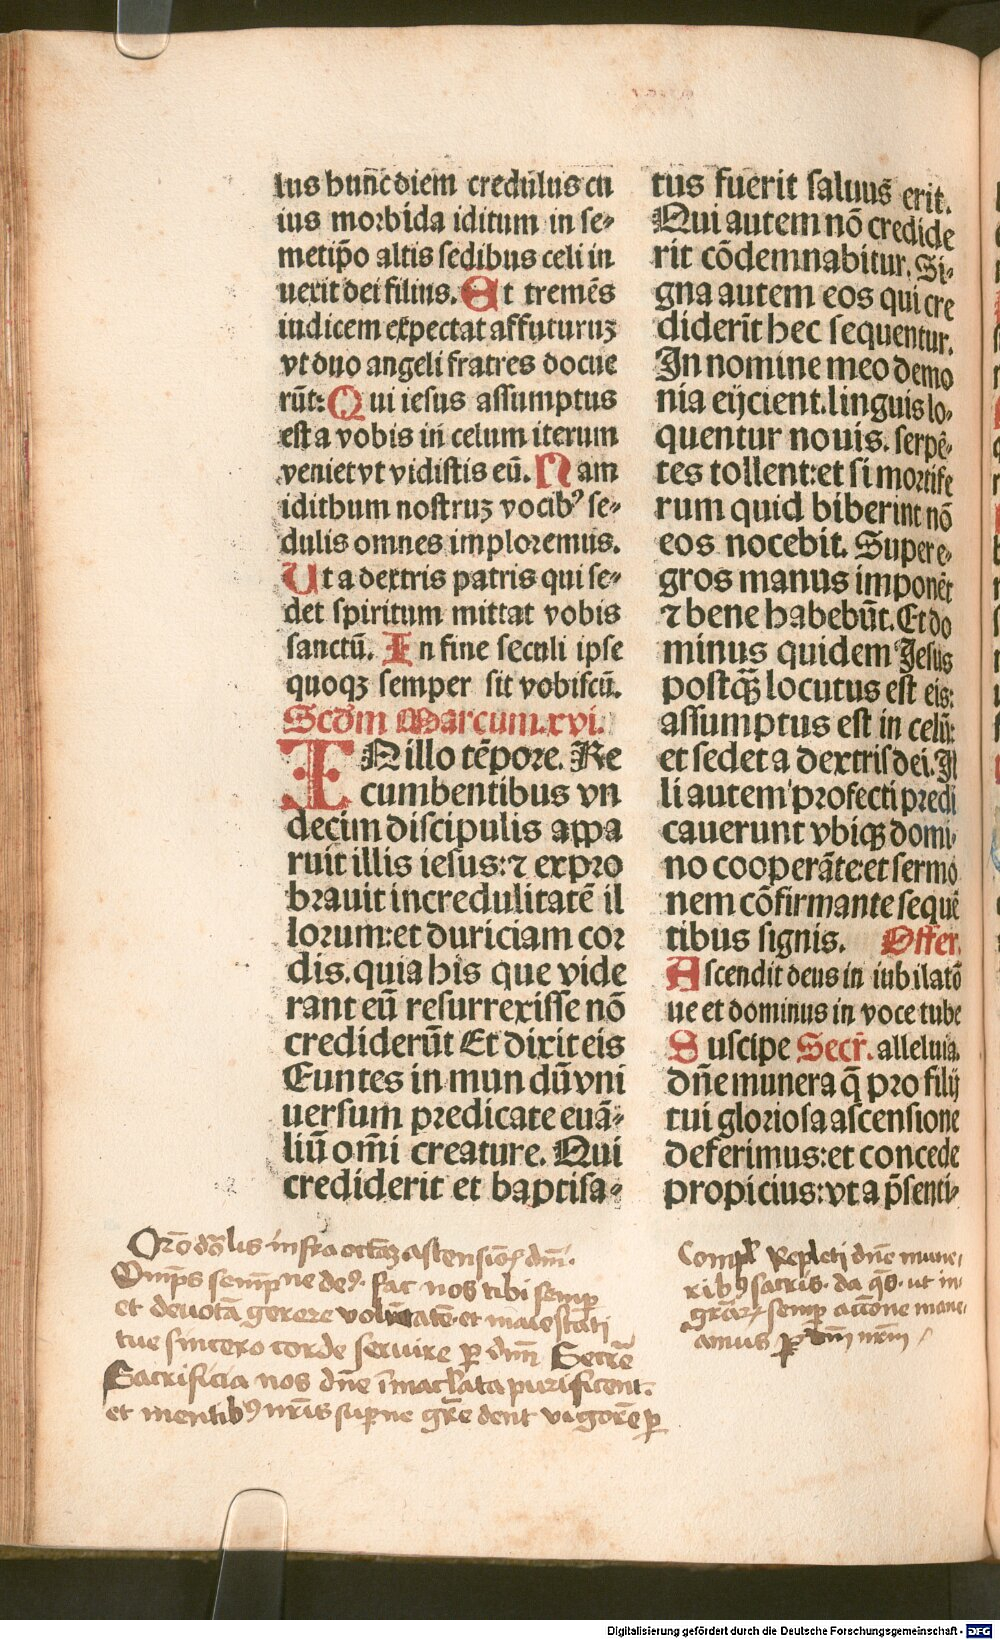 lus hunc diem credulus cu
ius morbida iditum in se⸗
metip̄o altis sedibus celi in
uerit dei filius. Et tremēs
iudicem expectat affuturuꝫ
vt duo angeli fratres docue
rūt: Qui iesus assumptus
est a vobis in celum iterum
veniet vt vidistis eū. Nam
idithum nostruꝫ vocibꝰ se⸗
dulis omnes imploremus.
Ut a dextris patris qui se⸗
det spiritum mittat vobis
sanctū. In fine seculi ipse
quoqꝫ semper sit vobiscū.
Scd̄m Marcum. xvi.
IN illo tēpore. Re
cumbentibus vn
decim discipulis appa
ruit illis iesus: ⁊ expro
brauit incredulitatē il
lorum: et duriciam cor
dis. quia his que vide
rant eū resurrexisse nō
crediderūt Et dixit eis
Euntes in mundū vni
uersum predicate euā⸗
liū om̄i creature. Qui
crediderit et baptisa⸗
tus fuerit saluus erit.
Qui autem nō credide
rit cōdemnabitur. Si⸗
gna autem eos qui cre
diderīt hec sequentur.
In nomine meo demo
nia eijcient. linguis lo⸗
quentur nouis. serpē⸗
tes tollent: et si mortife
rum quid biberint nō
eos nocebit. Super e⸗
gros manus imponēt
⁊ bene habebūt. Et do
minus quidem Jesus
postqꝫ̄ locutus est eis:
assumptus est in celū:
et sedet a dextris dei. Il
li autem profecti predi
cauerunt vbiqꝫ domi⸗
no cooperāte: et sermo
nem cōfirmante sequē
tibus signis. Offer.
Ascendit deus in iubilatō
ue et dominus in voce tube
Suscipe Secr̄. alleluia.
dn̄e munera q̄ pro filij
tui gloriosa ascensione
deferimus: et concede
propicius: vt a p̄senti⸗
Orō dō̄lis infra octauaꝫ ascensiōis dm̄.
Omps̄ semp̄ne deꝰ. fac nos tibi semꝑ
et deuotā gerere volūtatē. et maiestati
tue sincero corde seruire ꝑ dn̄m Secrē
Sacrificia nos dn̄e īmaculata purificent.
et mentibꝰ nr̄is supne gr̄e dent vigorē ꝑ
Compl̄ Repleti dn̄e mune⸗
ribꝰ sacris. da qs̄. ut in
gr̄aꝝ semꝑ actione mane⸗
amus ꝑ dn̄m nr̄m
Digitalisierung gefördert durch die Deutsche Forschungsgemeinschaft - DFG